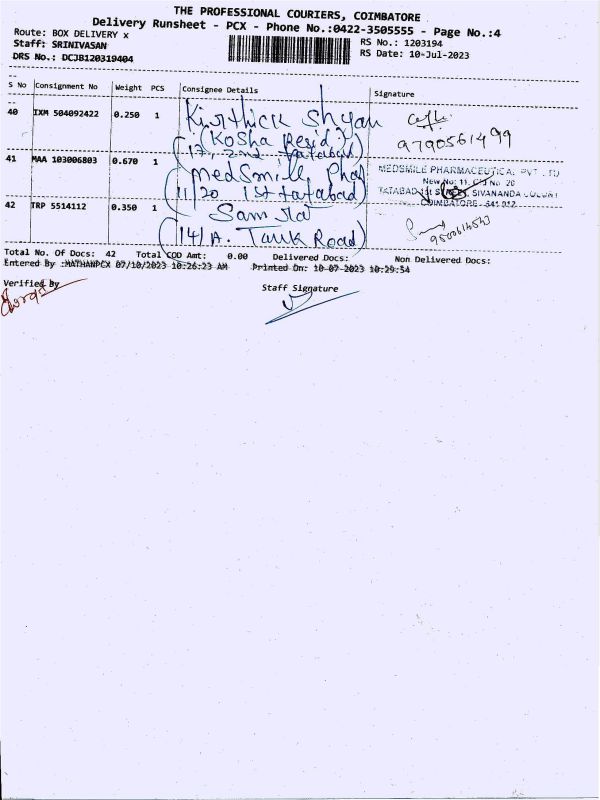 THE PROFESSIONAL COURIERS, COIMBATORE
Delivery Runsheet - PCX - Phone No.:0422-3505555 - Page No.:4
Route: BOX DELIVERY x
Staff: SRINIVASAN
DRS No.: DCJB120319404
RS No.: 1203194
RS Date: 10-Jul-2023
S No Consignment No Weight PCS Consignee Details Signature
40 IXM 504092422 0.250 1 Kirthick Shyam
(Kosha Resid)
(17, 2nd Tatabad)
9790561499
41 MAA 103006803 0.670 1 MedSmile Phar
(11/20 1st tatabad)
MEDSMILE PHARMACEUTICAL PVT LTD
New No: 11, Old No 20
TATABAD 1st SIVANANDA COLONY
COIMBATORE - 641 012
42 TRP 5514112 0.350 1
(14/A. Tank Road)
9500614543
Total No. Of Docs: 42 Total COD Amt: 0.00 Delivered Docs: Non Delivered Docs:
Entered By :MATHANPCX 07/10/2023 10:26:23 AM Printed On: 10-07-2023 10:29:54
Verified By
Staff Signature